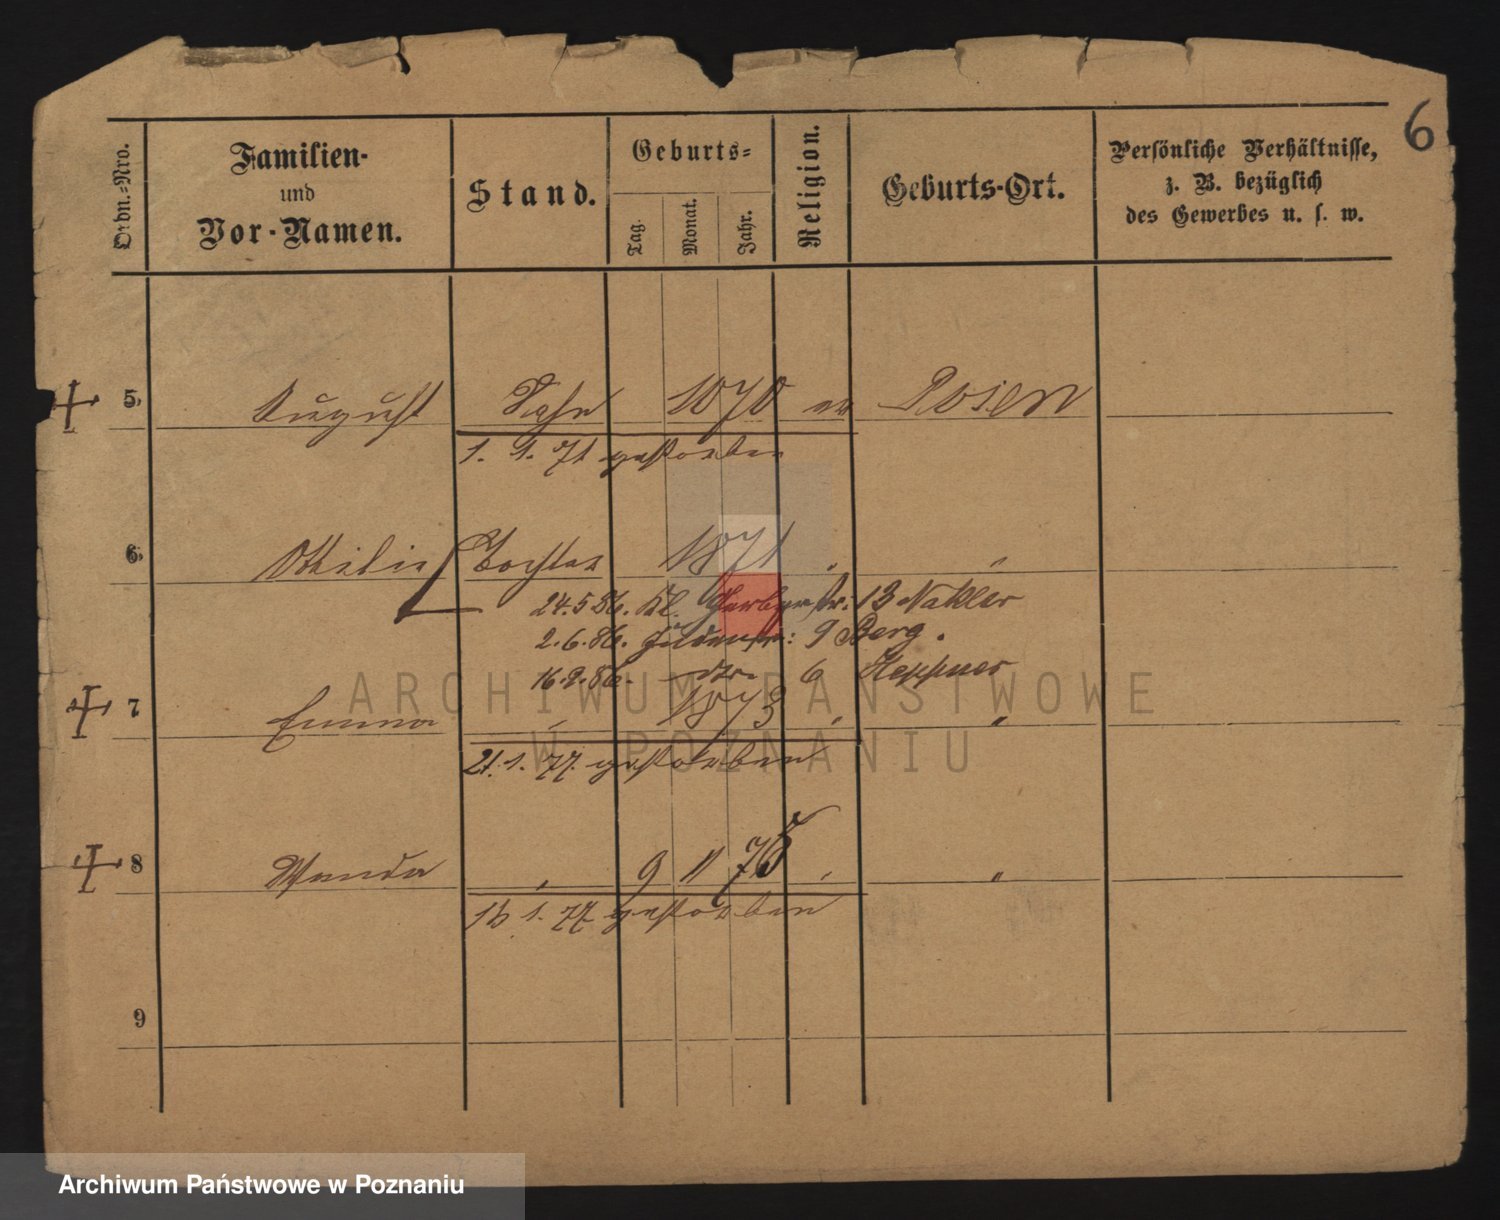 6
Ordn.-Nro.
Familien-
und
Vor-Namen.
Stand.
Geburts-
Tag.
Monat.
Jahr.
Religion.
Geburts-Ort.
Persönliche Verhältnisse,
z. B. bezüglich
des Gewerbes u. s. w.
5. August Sohn 1870 ev Posen
1. 1. 71 gestorben
6. Ottilie Tochter 1871 " "
24.5.86. Kl. Gerberstr: 13 Nakler
2.6.86. 9 Berg.
16.9.86. dto. 6 Heppner
7 Emma " 1873 " "
21. 1. 77. gestorben
8 Wanda " 9 11 75 " "
1. 77 gestorben
9
ARCHIWUM PAŃSTWOWE
W POZNANIU
Archiwum Państwowe w Poznaniu